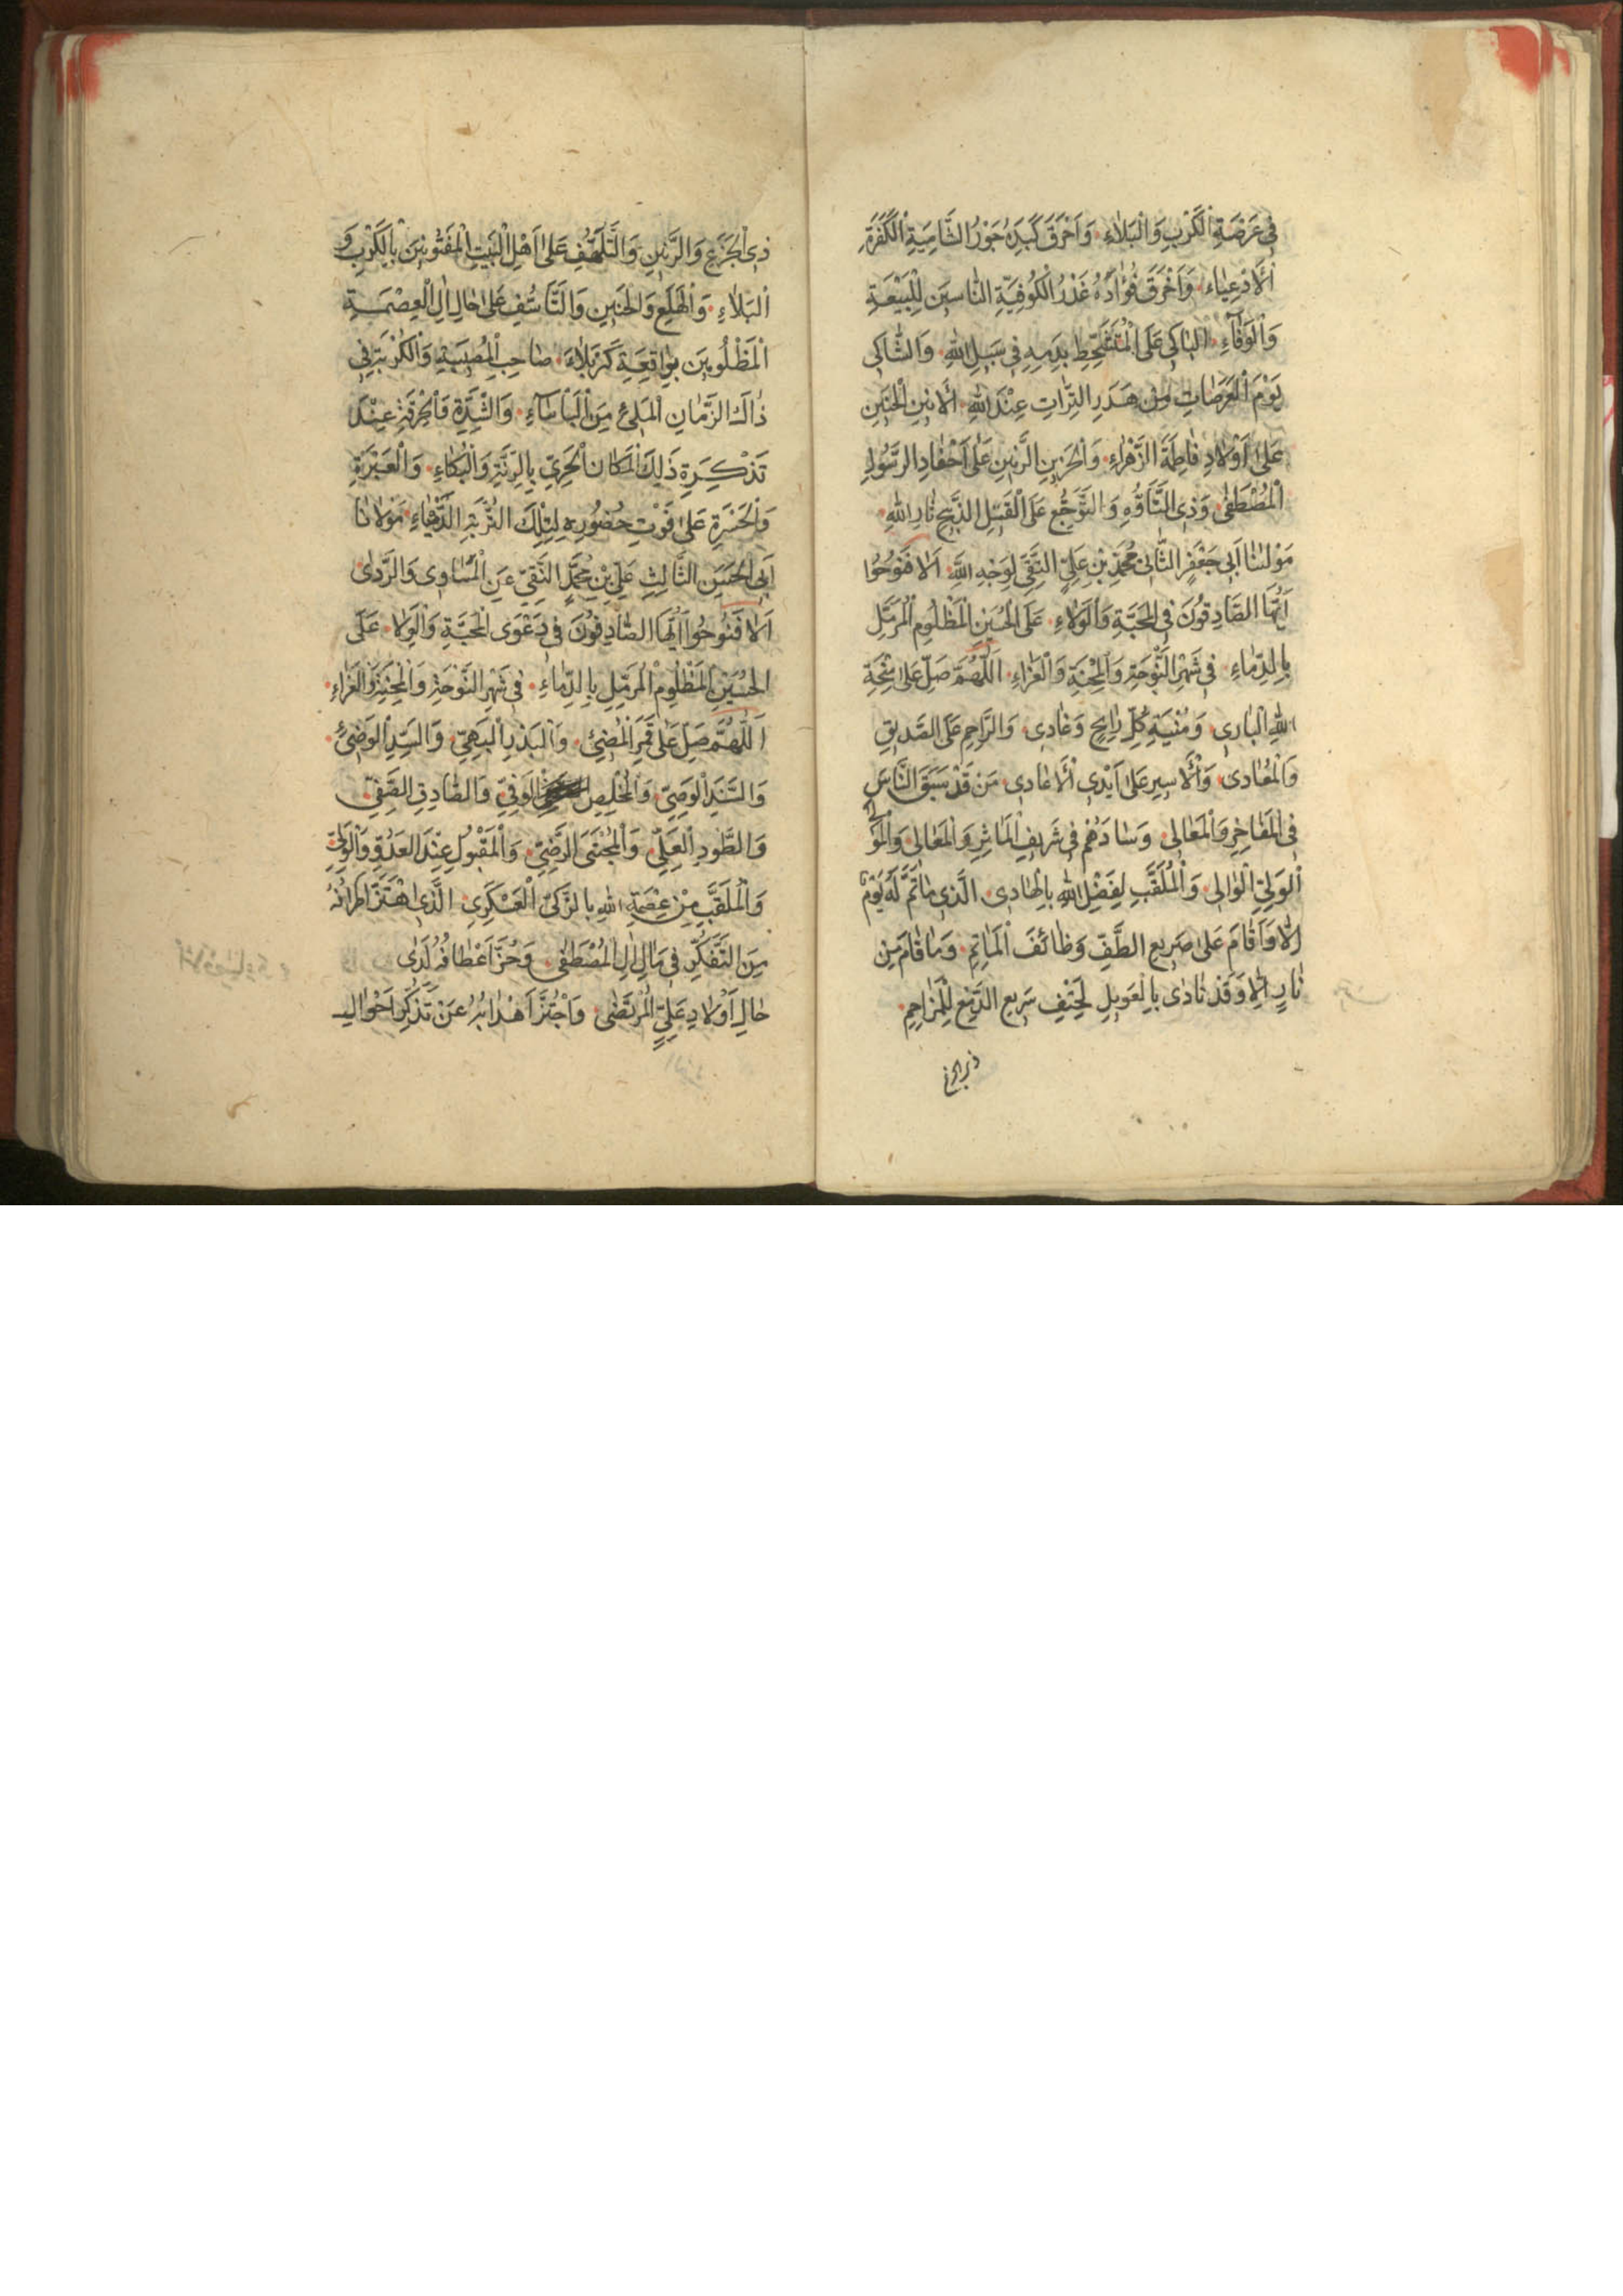 فِي عَرْصَةِ الْكَرْبِ وَالْبَلَاءِ وَاَحْرَقَ كَبِدَهُ جَوْرُ الشَّامِيَّةِ الْكَفَرَةِ
الْاَدْعِيَاءِ وَاَخْرَقَ فُؤَادَهُ غَدْرُ الْكُوفِيَّةِ النَّاسِينَ لِلْبَيْعَةِ
وَالْوَفَاءِ الْبَاكِي عَلَى الْمُتَشَحِّطِ بِدَمِهِ فِي سَبِيلِ اللهِ وَالشَّاكِي
يَوْمَ الْعَرَصَاتِ مِنْ هَدَرِ التِّرَاتِ عِنْدَ اللهِ الْاَنِينِ الْحَنِينِ
عَلَى اَوْلَادِ فَاطِمَةَ الزَّهْرَاءِ وَالْحَزِينِ الرَّنِينِ عَلَى اَحْفَادِ الرَّسُولِ
الْمُصْطَفَى وَذِي التَّاَوُّهِ وَالتَّوَجُّعِ عَلَى الْقَتِيلِ الذَّبِيحِ ثَارِ اللهِ
مَوْلٰينَا اَبِي جَعْفَرٍ الثَّانِي مُحَمَّدِ بْنِ عَلِيٍّ التَّقِيِّ لِوَجْهِ اللهِ اَلَا فَنُوحُوا
اَيُّهَا الصَّادِقُونَ فِي الْمَحَبَّةِ وَالْوَلَاءِ عَلَى الْحُسَيْنِ الْمَظْلُومِ الْمُرَمَّلِ
بِالدِّمَاءِ فِي شَهْرِ النَّوْحَةِ وَالْمِحْنَةِ وَالْعَزَاءِ اَللّٰهُمَّ صَلِّ عَلَى مِنْحَةِ
اللهِ الْبَارِي وَمُنْيَةِ كُلِّ رَايِحٍ وَغَادِي وَالرَّاحِمِ عَلَى الصَّدِيقِ
وَالْمُعَادِي وَالْاَسِيرِ عَلَى اَيْدِي الْاَعَادِي مَنْ قَدْ سَبَقَ النَّاسَ
فِي الْمَفَاخِرِ وَالْمَعَالِي وَسَادَهُمْ فِي شَرِيفِ الْمَاٰثِرِ وَالْمَعَالِي وَالْمَوْلَى
الْوَلِيِّ الْوَالِي وَالْمُلَقَّبِ لِفَضْلِ اللهِ بِالْهَادِي الَّذِي مَا تَمَّ لَهُ يَوْمٌ
اِلَّا وَاَقَامَ عَلَى صَرِيعِ الطَّفِّ وَظَائِفَ الْمَاٰتِمِ وَمَا قَامَ مِنْ
نَادٍ اِلَّا وَقَدْ نَادَى بِالْعَوِيلِ لِحَتْفِ سَرِيعِ الدَّمْعِ لِلْمَرَاحِمِ
ذي الجزع
ذِي الْجَزَعِ وَالرَّنِينِ وَالتَّلَهُّفِ عَلَى اَهْلِ الْبَيْتِ الْمَفْتُونِينَ بِالْكَرْبِ وَ
الْبَلَاءِ وَالْهَلَعِ وَالْحَنِينِ وَالتَّاَسُّفِ عَلَى حَالِ اٰلِ الْعِصْمَةِ
الْمَظْلُومِينَ بِوَاقِعَةِ كَرْبَلَاءَ صَاحِبِ الْمُصِيبَةِ وَالْكُرْبَةِ فِي
ذَاكَ الزَّمَانِ الْمَلِئِ مِنَ الْبَاْسَاءِ وَالشِّدَّةِ وَالْحُرْقَةِ عِنْدَ
تَذْكِرَةِ ذَلِكَ الْمَكَانِ الْحَرِيِّ بِالرَّنَّةِ وَالْبُكَاءِ وَالْعَبْرَةِ
وَالْحَسْرَةِ عَلَى فَوْتِ حُضُورِهِ لِتِلْكَ الرَّزِيَّةِ الدَّهْيَاءِ مَوْلَانَا
اَبِي الْحَسَنِ الثَّالِثِ عَلِيِّ بْنِ مُحَمَّدٍ النَّقِيِّ عَنِ الْمَسَاوِي وَالرَّدَى
اَلَا فَنُوحُوا اَيُّهَا الصَّادِقُونَ فِي دَعْوَى الْمَحَبَّةِ وَالْوَلَا عَلَى
الْحُسَيْنِ الْمَظْلُومِ الْمُرَمَّلِ بِالدِّمَاءِ فِي شَهْرِ النَّوْحَةِ وَالْمِحْنَةِ وَالْعَزَاءِ
اَللّٰهُمَّ صَلِّ عَلَى قَمَرِ الْمُضِيئِ وَالْبَدْرِ الْبَهِيِّ وَالسَّيِّدِ الْوَضِيئِ
وَالسَّنَدِ الْوَصِيِّ وَالْمُخْلِصِ الْوَفِيِّ وَالصَّادِقِ الصَّفِيِّ
وَالطَّوْدِ الْعَلِيِّ وَالْمُجْتَبَى الرَّضِيِّ وَالْمَقْبُولِ عِنْدَ الْعَدُوِّ وَالْوَلِيِّ
وَالْمُلَقَّبِ مِنْ عِصْمَةِ اللهِ بِالزَّكِيِّ الْعَسْكَرِيِّ الَّذِي اهْتَزَّ اَطْرَافُهُ
مِنَ التَّفَكُّرِ فِي مَاٰلِ اٰلِ الْمُصْطَفَى وَحُزَّ اَعْطَافُهُ لَدَى
حَالِ اَوْلَادِ عَلِيٍّ الْمُرْتَضَى وَاجْتُزَّ اَهْدَابُهُ عَنْ تَذَكُّرِ اَحْوَالِ